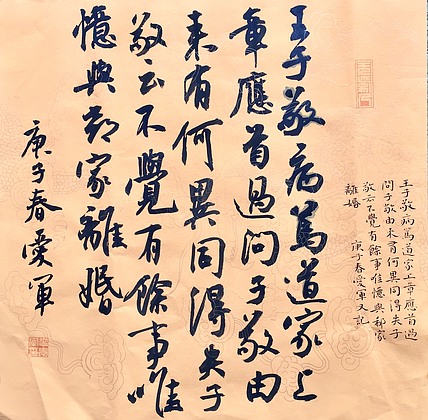 王子敬病篤道家上
章應首過問子敬由
来有何異同得失子
敬云不覺有餘事唯
憶與郗家離婚
庚子春愛軍
王子敬病篤道家上章應首過
問子敬由来有何異同得失子
敬云不覺有餘事惟憶與郗家
離婚 庚子春愛軍又記